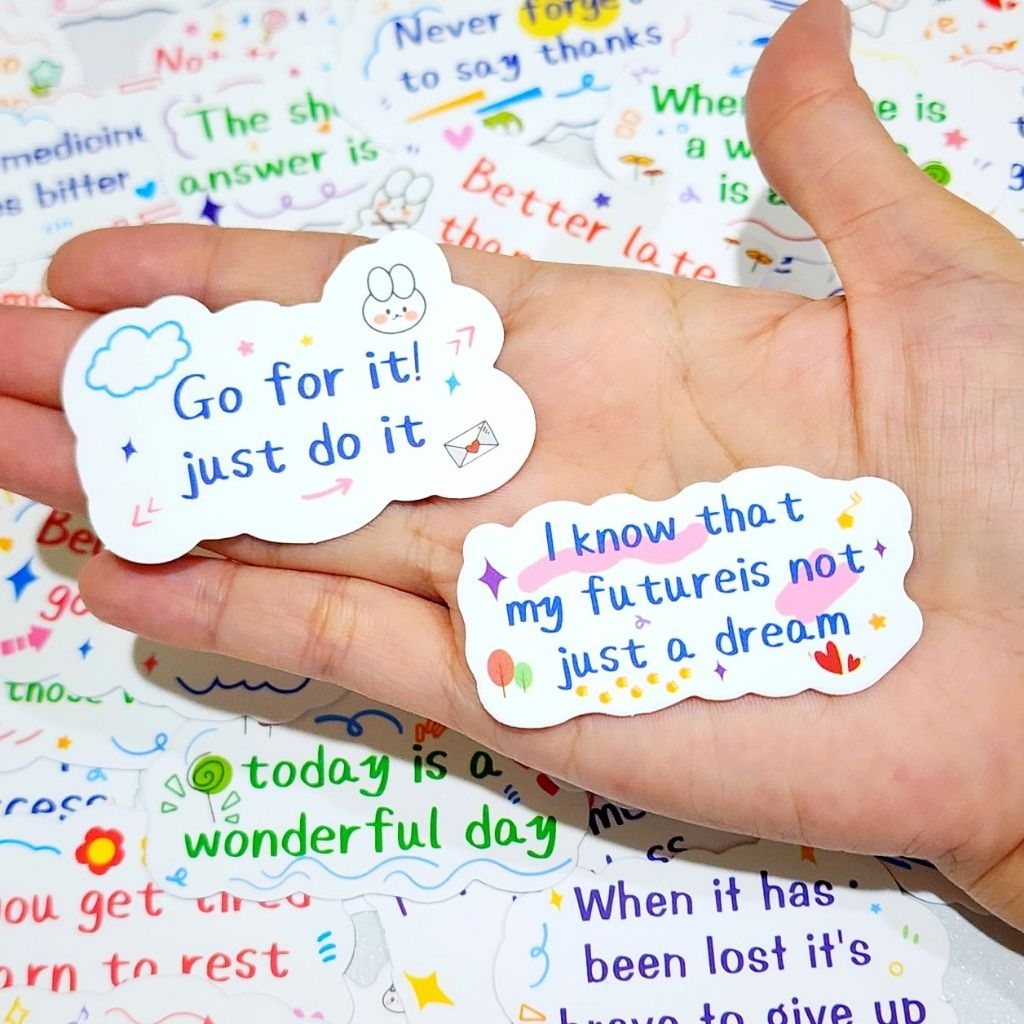 Never forge
to say thanks
No
medicine
es bitter
The sh
answer is
Whe e is
a w
is a
Better late
than
Go for it!
just do it
I know that
my futureis not
just a dream
go
those
today is a
wonderful day
you get tired
arn to rest
When it has
been lost it's
brave to give up